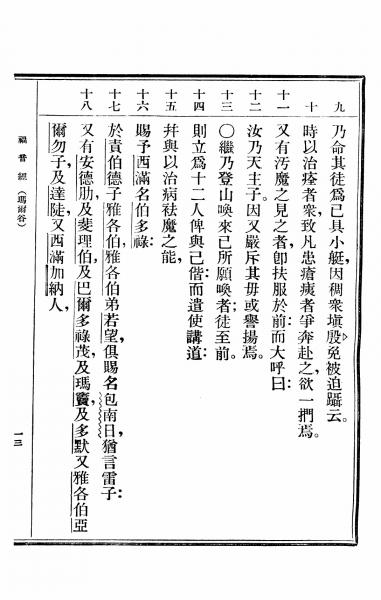 九 乃命其徒爲已具小艇,因稠衆塡殷,免被迫躡云。
十 時以治痊者衆,致凡患瘡痍者爭奔赴之,欲一捫焉。
十一 又有汚魔之見之者,卽扶服於前,而大呼曰:
十二 汝乃天主子。因又嚴斥其毋或譽揚焉。
十三 〇繼乃登山,喚來已所願喚者;徒至前。
十四 則立爲十二人,俾與已偕,而遣使講道;
十五 幷與以治病祛魔之能,
十六 賜予西滿名伯多祿;
十七 於責伯德子雅各伯,雅各伯弟若望,俱賜名包南日,猶言雷子;
十八 又有安德肋,及斐理伯,及巴爾多祿茂,及瑪竇,及多默,又雅各伯亞
爾勿子,及達陡,又西滿加納人,
福音經(瑪爾谷)
一三